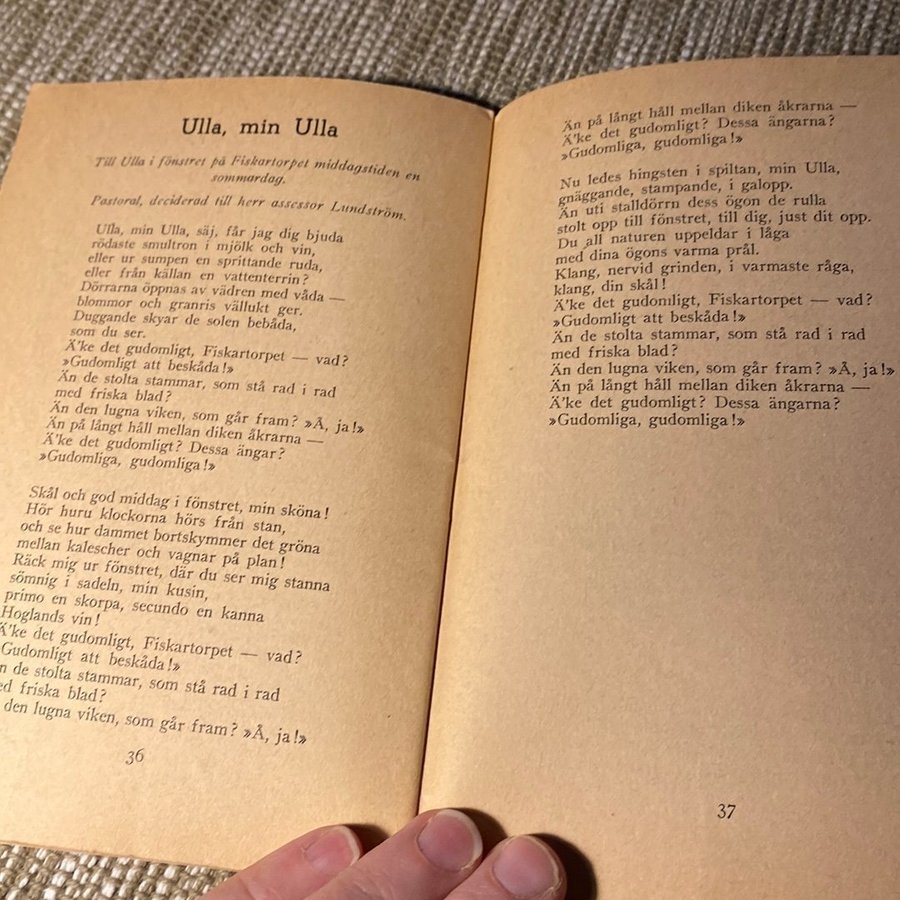 Ulla, min Ulla
Till Ulla i fönstret på Fiskartorpet middagstiden en
sommardag.
Pastoral, deciderad till herr assessor Lundström.
Ulla, min Ulla, säj, får jag dig bjuda
rödaste smultron i mjölk och vin,
eller ur sumpen en sprittande ruda,
eller från källan en vattenterrin?
Dörrarna öppnas av vädren med våda —
blommor och granris vällukt ger.
Duggande skyar de solen bebåda,
som du ser.
Ä'ke det gudomligt, Fiskartorpet — vad?
»Gudomligt att beskåda!»
Än de stolta stammar, som stå rad i rad
med friska blad?
Än den lugna viken, som går fram? »Å, ja!»
Än på långt håll mellan diken åkrarna —
Ä'ke det gudomligt? Dessa ängar?
»Gudomliga, gudomliga!»
Skål och god middag i fönstret, min sköna!
Hör huru klockorna hörs från stan,
och se hur dammet bortskymmer det gröna
mellan kalescher och vagnar på plan!
Räck mig ur fönstret, där du ser mig stanna
sömnig i sadeln, min kusin,
primo en skorpa, secundo en kanna
Hoglands vin!
Ä'ke det gudomligt, Fiskartorpet — vad?
Gudomligt att beskåda!»
n de stolta stammar, som stå rad i rad
ed friska blad?
den lugna viken, som går fram? »Å, ja!»
36
Än på långt håll mellan diken åkrarna —
Ä'ke det gudomligt? Dessa ängarna?
»Gudomliga, gudomliga!»
Nu ledes hingsten i spiltan, min Ulla,
gnäggande, stampande, i galopp.
Än uti stalldörrn dess ögon de rulla
stolt opp till fönstret, till dig, just dit opp.
Du all naturen uppeldar i låga
med dina ögons varma prål.
Klang, nervid grinden, i varmaste råga,
klang, din skål!
Ä'ke det gudomligt, Fiskartorpet — vad?
»Gudomligt att beskåda!»
Än de stolta stammar, som stå rad i rad
med friska blad?
Än den lugna viken, som går fram? »Å, ja!»
Än på långt håll mellan diken åkrarna —
Ä'ke det gudomligt? Dessa ängarna?
»Gudomliga, gudomliga!»
37